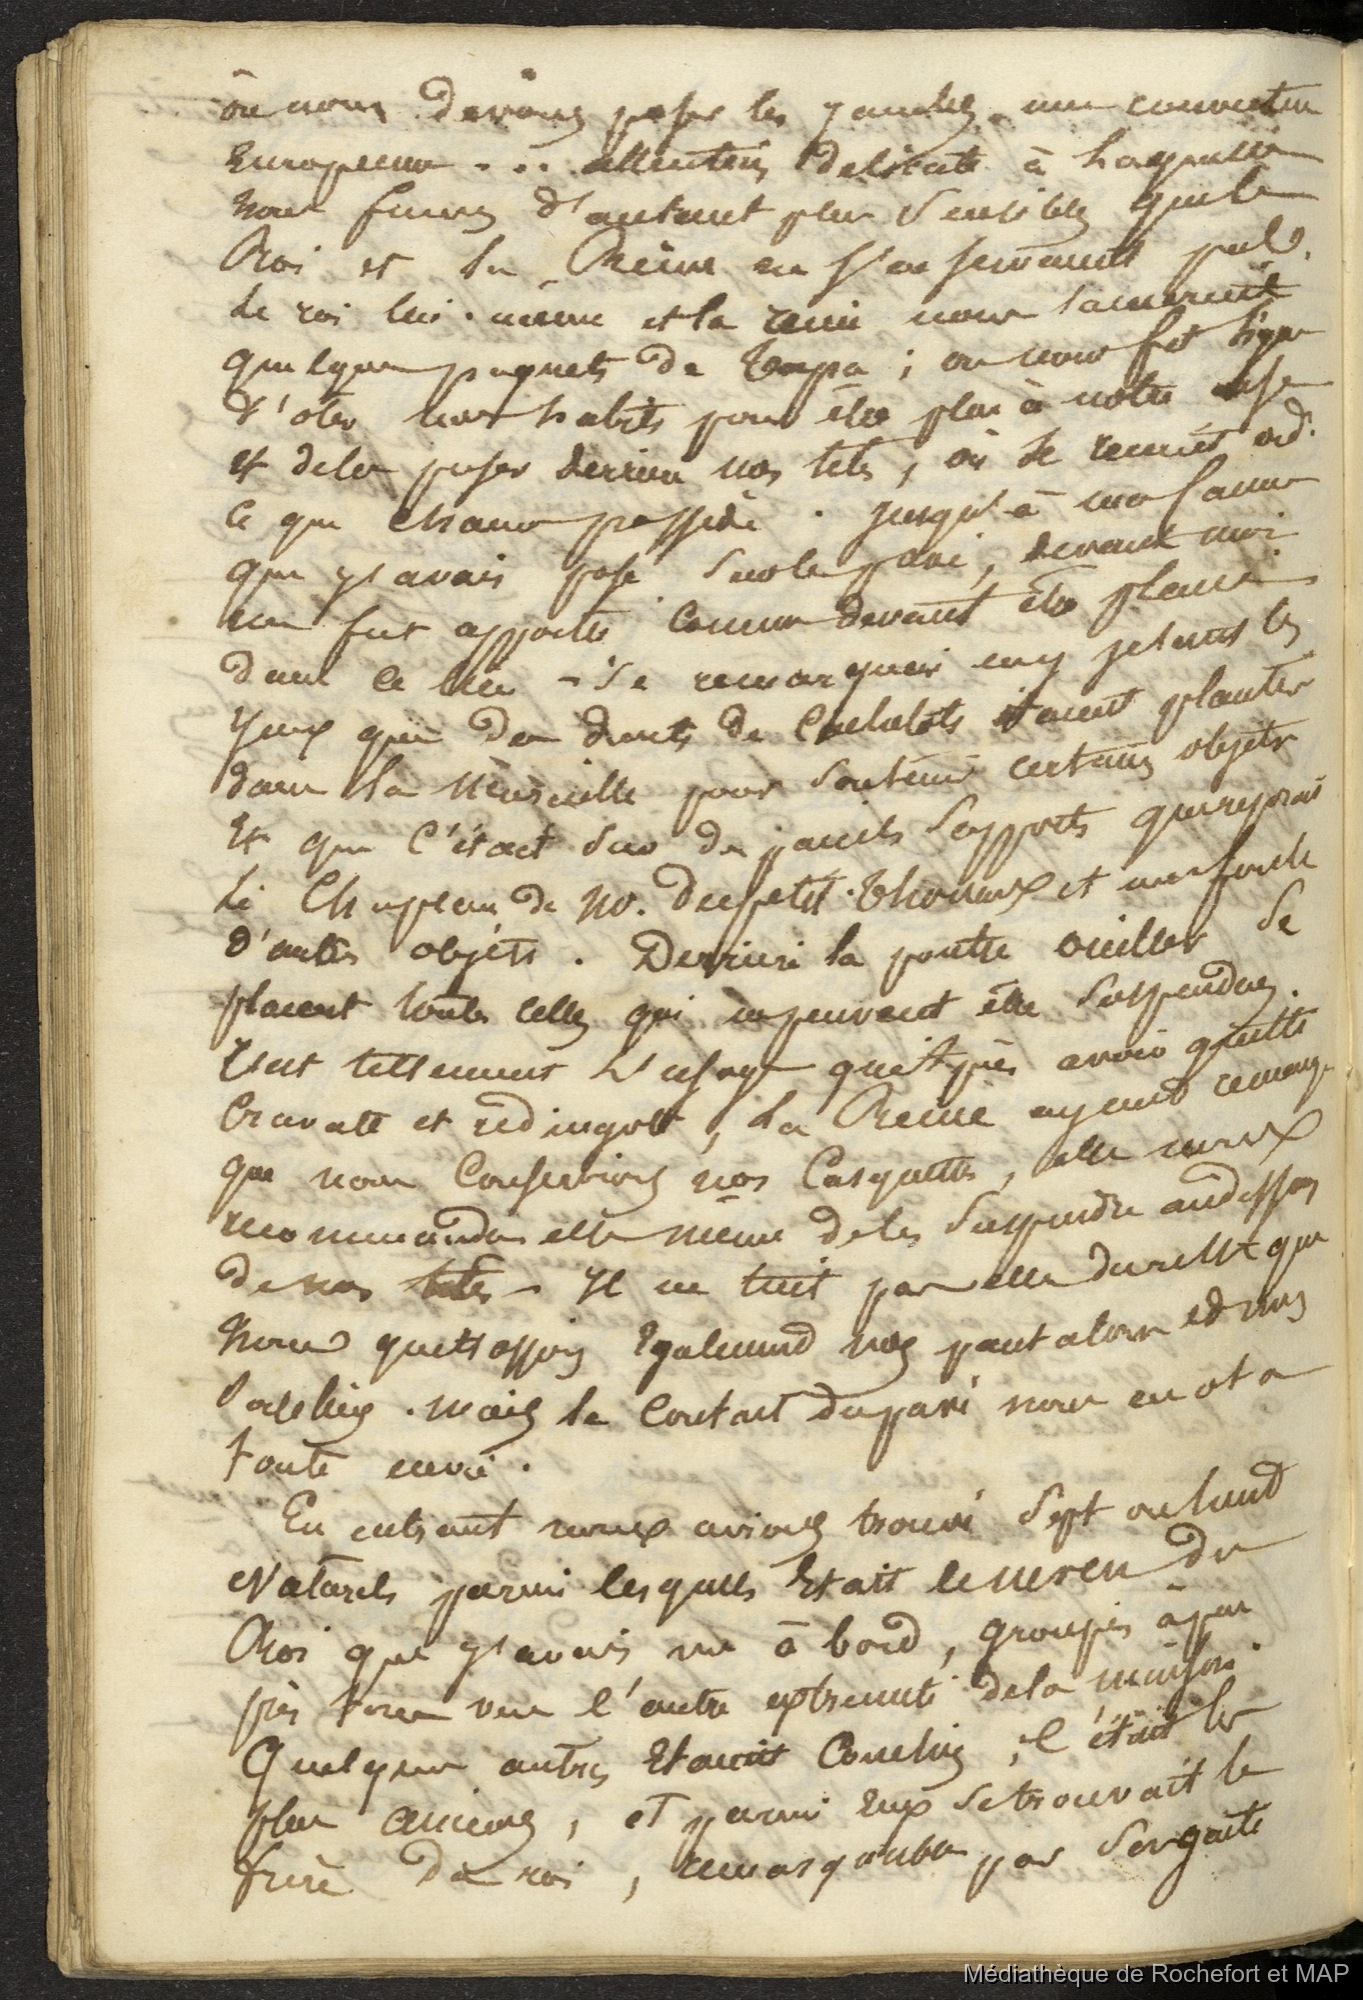 où nous devions poser les jambes, une couverture
Européenne - .. attention délicate à laquelle
nous fumes d'autant plus sensibles que le
Roi et la Reine en
Le roi lui-même et la reine nous
quelques paquets de Tapa ; on nous fit signe
d'oter nos habits pour être plus à notre aise
et de les poser derrière nos têtes, où se remet ord.
ce que chacun possède . jusqu'à ma canne
que j'avais posé sur le pavé, devant moi
me fut apportée comme devant être placée
dans ce lieu - Je remarquai en y jetant les
yeux que des dents de Cachalots étaient plantés
dans la muraille pour soutenir certains objets
et que c'était sur de pareils supports que reposait
le Chapeau de M. Dupetit-Thouars et une foule
d'autres objets . Derrière la poutre oreiller se
placent toutes celles qui ne peuvent être suspendues.
C'est tellement l'usage qu'après avoir quitté
Cravate et redingote, La Reine ayant remarqué
que nous conservions nos Casquettes, elle nous
recommanda elle même de les suspendre audessus
de nos têtes - Il ne tint pas à elle du reste que
nous quittassions également nos pantalons et nos
souliers . mais le Contact du pavé nous en ota
toute envie .
En entrant nous avions trouvé sept ou huit
Naturels parmi lesquels était le neveu du
Roi que j'avais vu à bord, groupés à peu
près tous vers l'autre extremité de la maison.
Quelques autres étaient Couchés, c'était les
plus anciens, et parmi eux se trouvait le
frère du roi, remarquable par